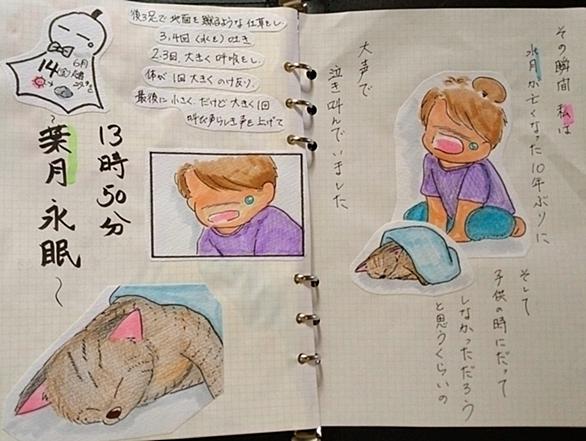 6月
14(金)
後ろ足で地面を蹴るような仕草をし、
3,4回(水を)吐き
2~3回、大きく呼吸をし、
体が1回大きくのけ反り、
最後に小さく、だけど大きく1回
叫び声らしき声を上げて
13時50分
葉月永眠~
その瞬間 私は
水月が亡くなった10年ぶりに
そして
子供の時にだって
しなかっただろう
と思うくらいの
大声で
泣き叫んでいました